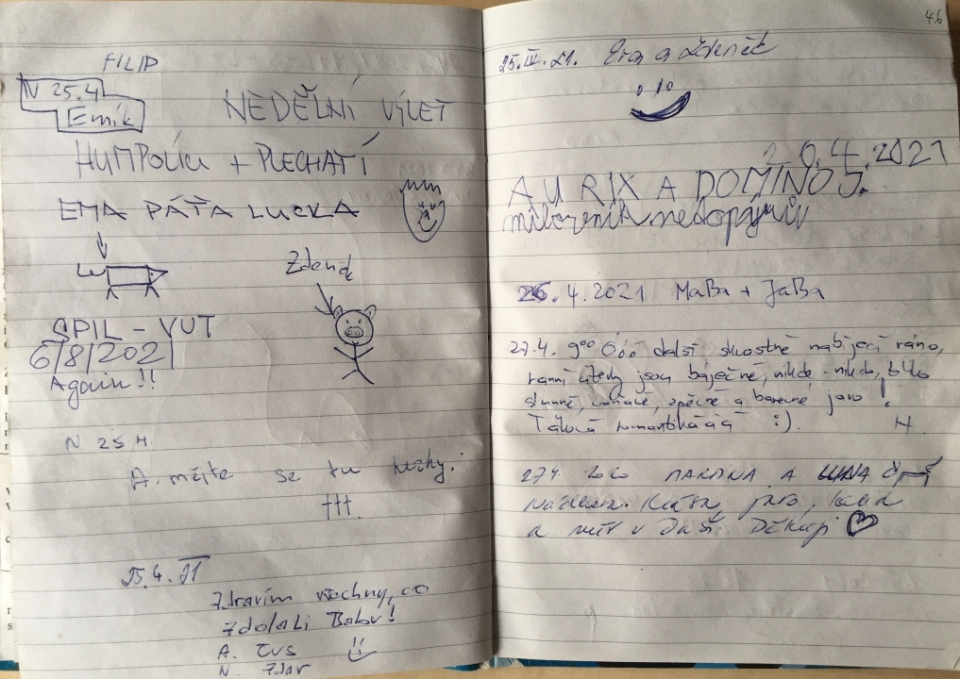 FILIP
N 25.4
Emík
NEDĚLNÍ VÝLET
HUMPOLÍCI + PLECHATÍ
EMA PÁŤA LUCKA
Zdeněk
SPIL - VUT
6/8/2021
Again!!
N 25 4.
A mějte se tu hezky.
†††.
25.4. 21
Zdravím všechny, co
zdolali Babu!
A. ČUS
N. Zdar
46
25.IV.21. Eva a Zdeněk
20.4.2021
AURIX A DOMINO 5.
26.4.2021 MaBa + JaBa
27.4. 9⁰⁰ Óóó další skvostné nabíjecí ráno,
ranní úterky jsou báječné, nikde nikdo, tolik
slunné, voňavé, zpěvné a barevné jaro!
Taková romantikááá :). H.
27.4. MARTINA A LUNA
Nádhera. Krása, jaro, klid
a mír v Duši. Děkuji